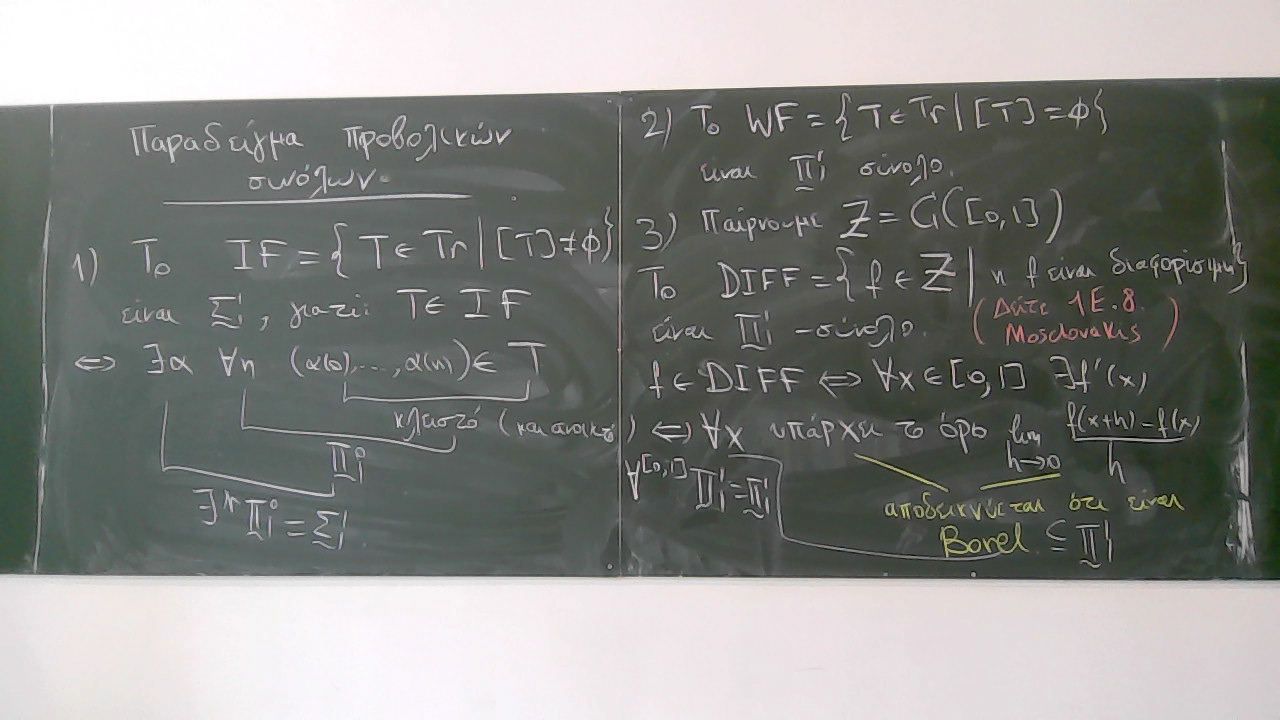 Παραδείγμα προβολικών
συνόλων.
1) Το IF = { T ∈ Tr | [T] ≠ ϕ}
είναι Σ̰¹₁, γιατί: T ∈ IF
⇔ ∃α ∀n (α(0),...,α(n)) ∈ T
κλειστό (και ανοικτό)
Π̰⁰₁
∃^𝒩 Π̰⁰₁ = Σ̰¹₁
2) Το WF = { T ∈ Tr | [T] = ϕ}
είναι Π̰¹₁ σύνολο.
3) Παίρνουμε Z = C([0,1])
Το DIFF = { f ∈ Z | η f είναι διαφορίσιμη}
είναι Π̰¹₁ -σύνολο. (Δείτε 1E.8.
Moschovakis)
f ∈ DIFF ⇔ ∀x ∈ [0,1] ∃f'(x)
⇔ ∀x υπάρχει το όριο lim h→0 f(x+h) - f(x) / h
∀^[0,1] Π̰¹₁ = Π̰¹₁
αποδεικνύεται ότι είναι
Borel ⊆ Π̰¹₁